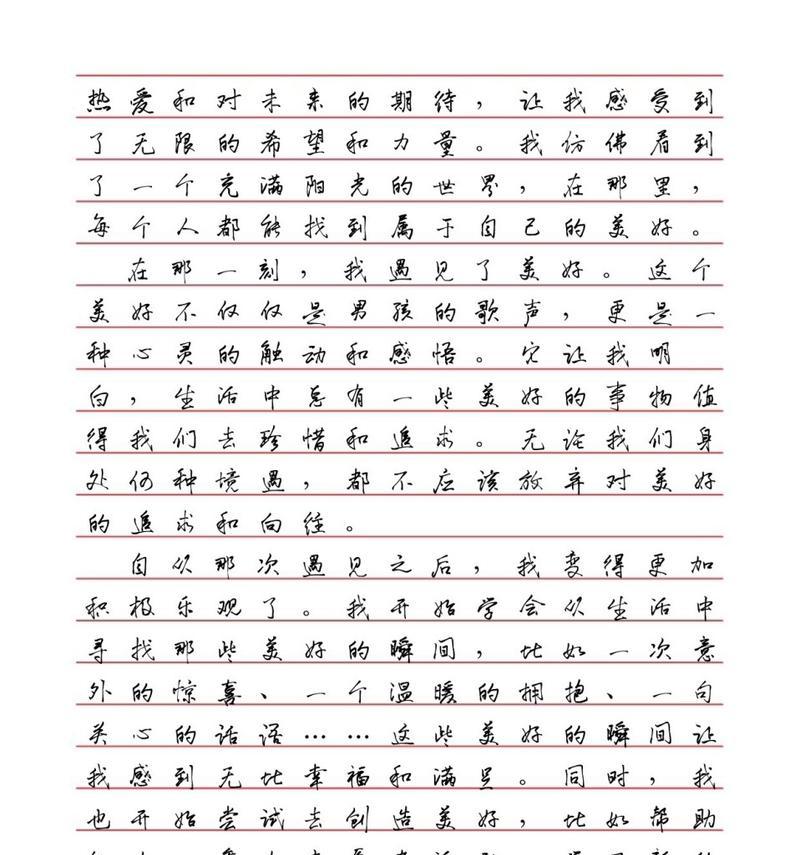 热爱和对未来的期待，让我感受到
了无限的希望和力量。我仿佛看到
了一个充满阳光的世界，在那里，
每个人都能找到属于自己的美好。
在那一刻，我遇见了美好。这个
美好不仅仅是男孩的歌声，更是一
种心灵的触动和感悟。它让我明
白，生活中总有一些美好的事物值
得我们去珍惜和追求。无论我们身
处何种境遇，都不应该放弃对美好
的追求和向往。
自从那次遇见之后，我变得更加
积极乐观了。我开始学会从生活中
寻找那些美好的瞬间，比如一次意
外的惊喜、一个温暖的拥抱、一句
关心的话语……这些美好的瞬间让
我感到无比幸福和满足。同时，我
也开始尝试去创造美好，比如帮助